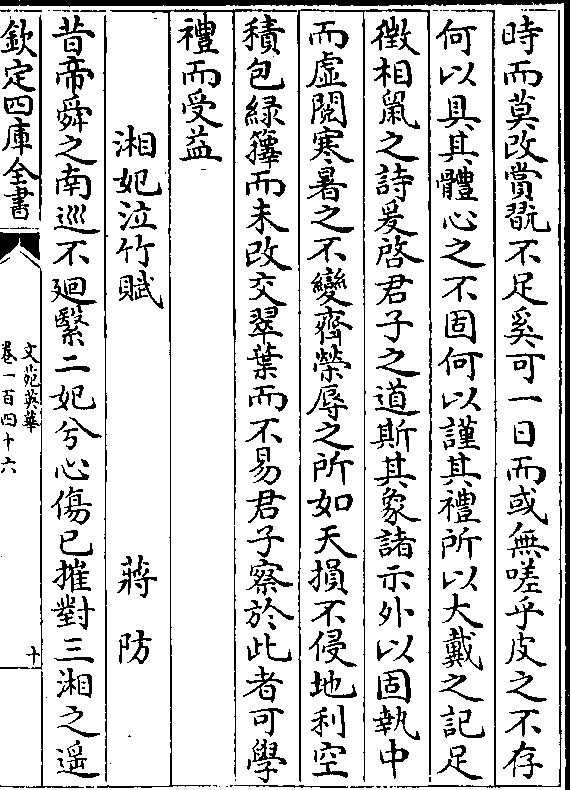 時而莫改賞翫不足奚可一日而或無嗟乎皮之不存
何以具其體心之不固何以謹其禮所以大戴之記足
徴相鼠之詩爰啓君子之道斯其象諸示外以固執中
而虚閲寒暑之不變齊榮辱之所如天損不侵地利空
積包緑籜而未改交翠葉而不易君子察於此者可學
禮而受益
湘妃泣竹賦 蔣防
昔帝舜之南巡不廻繄二妃兮心傷已摧對三湘之遥
欽定四庫全書
文苑英華
卷一百四十六
十